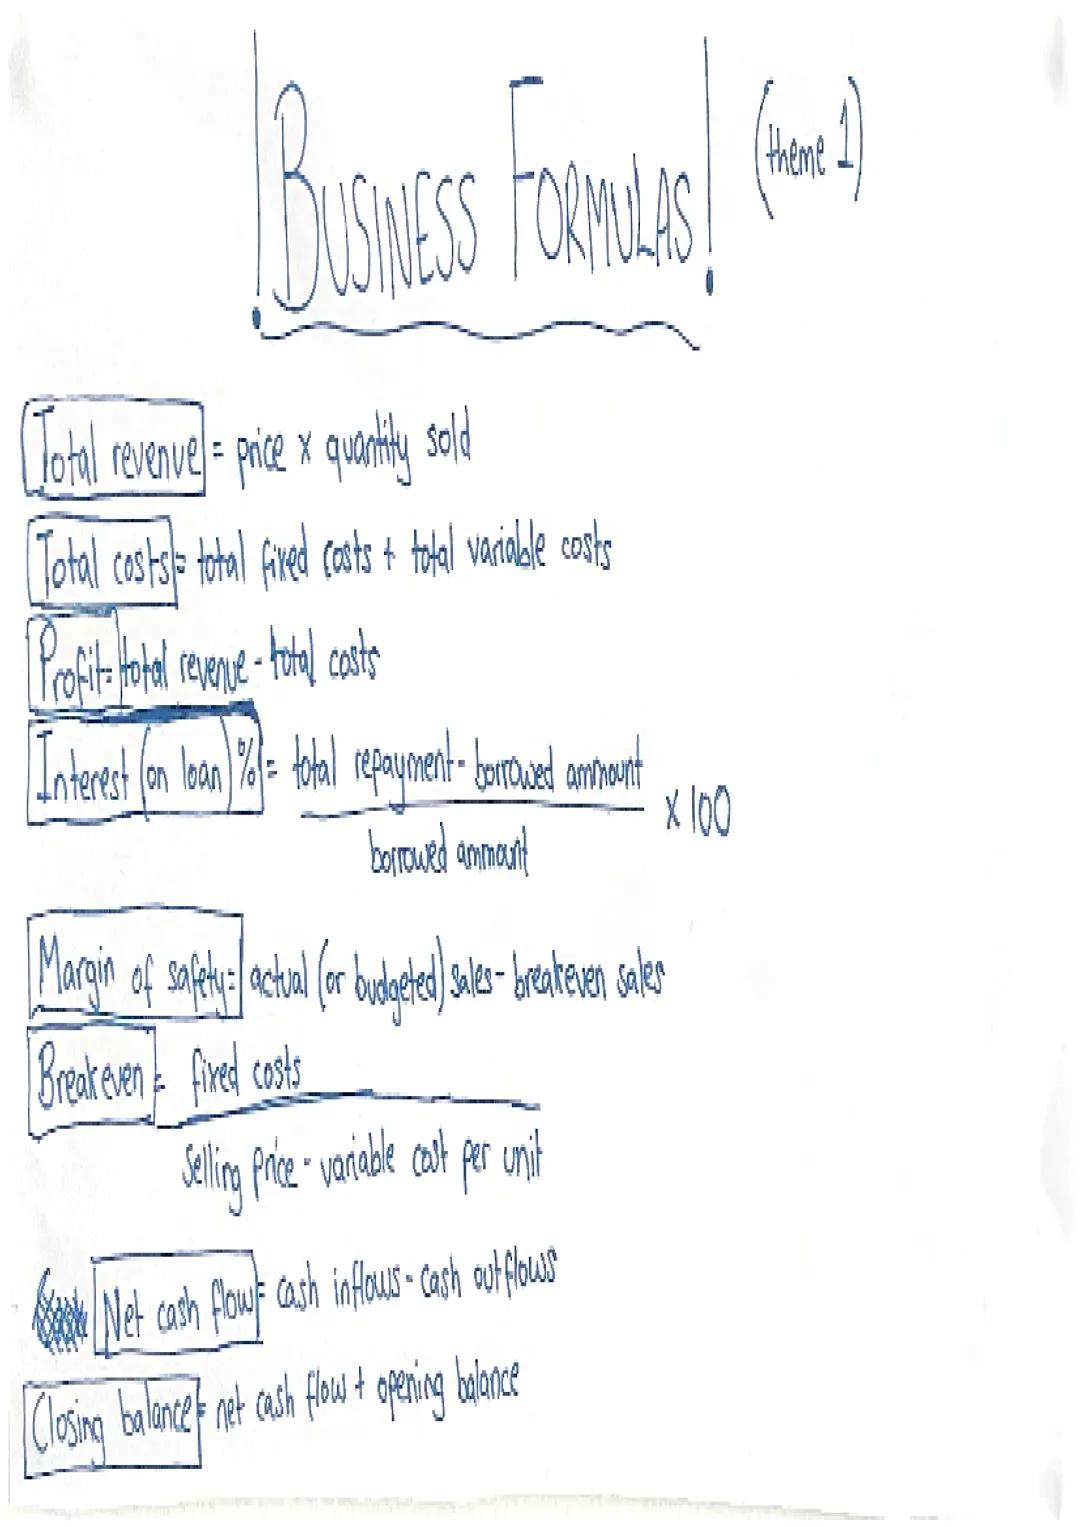 !BUSINESS FORMULAS! (theme 1)
Total revenue = price x quantity sold
Total costs = total fixed costs + total variable costs
Profit = total revenue - total costs
Interest (on loan) % = total repayment - borrowed ammount
x 100
borrowed ammount
Margin of safety = actual (or budgeted) sales - breakeven sales
Breakeven = fixed costs
Selling price - variable cost per unit
Net cash flow = cash inflows - cash outflows
Closing balance = net cash flow + opening balance